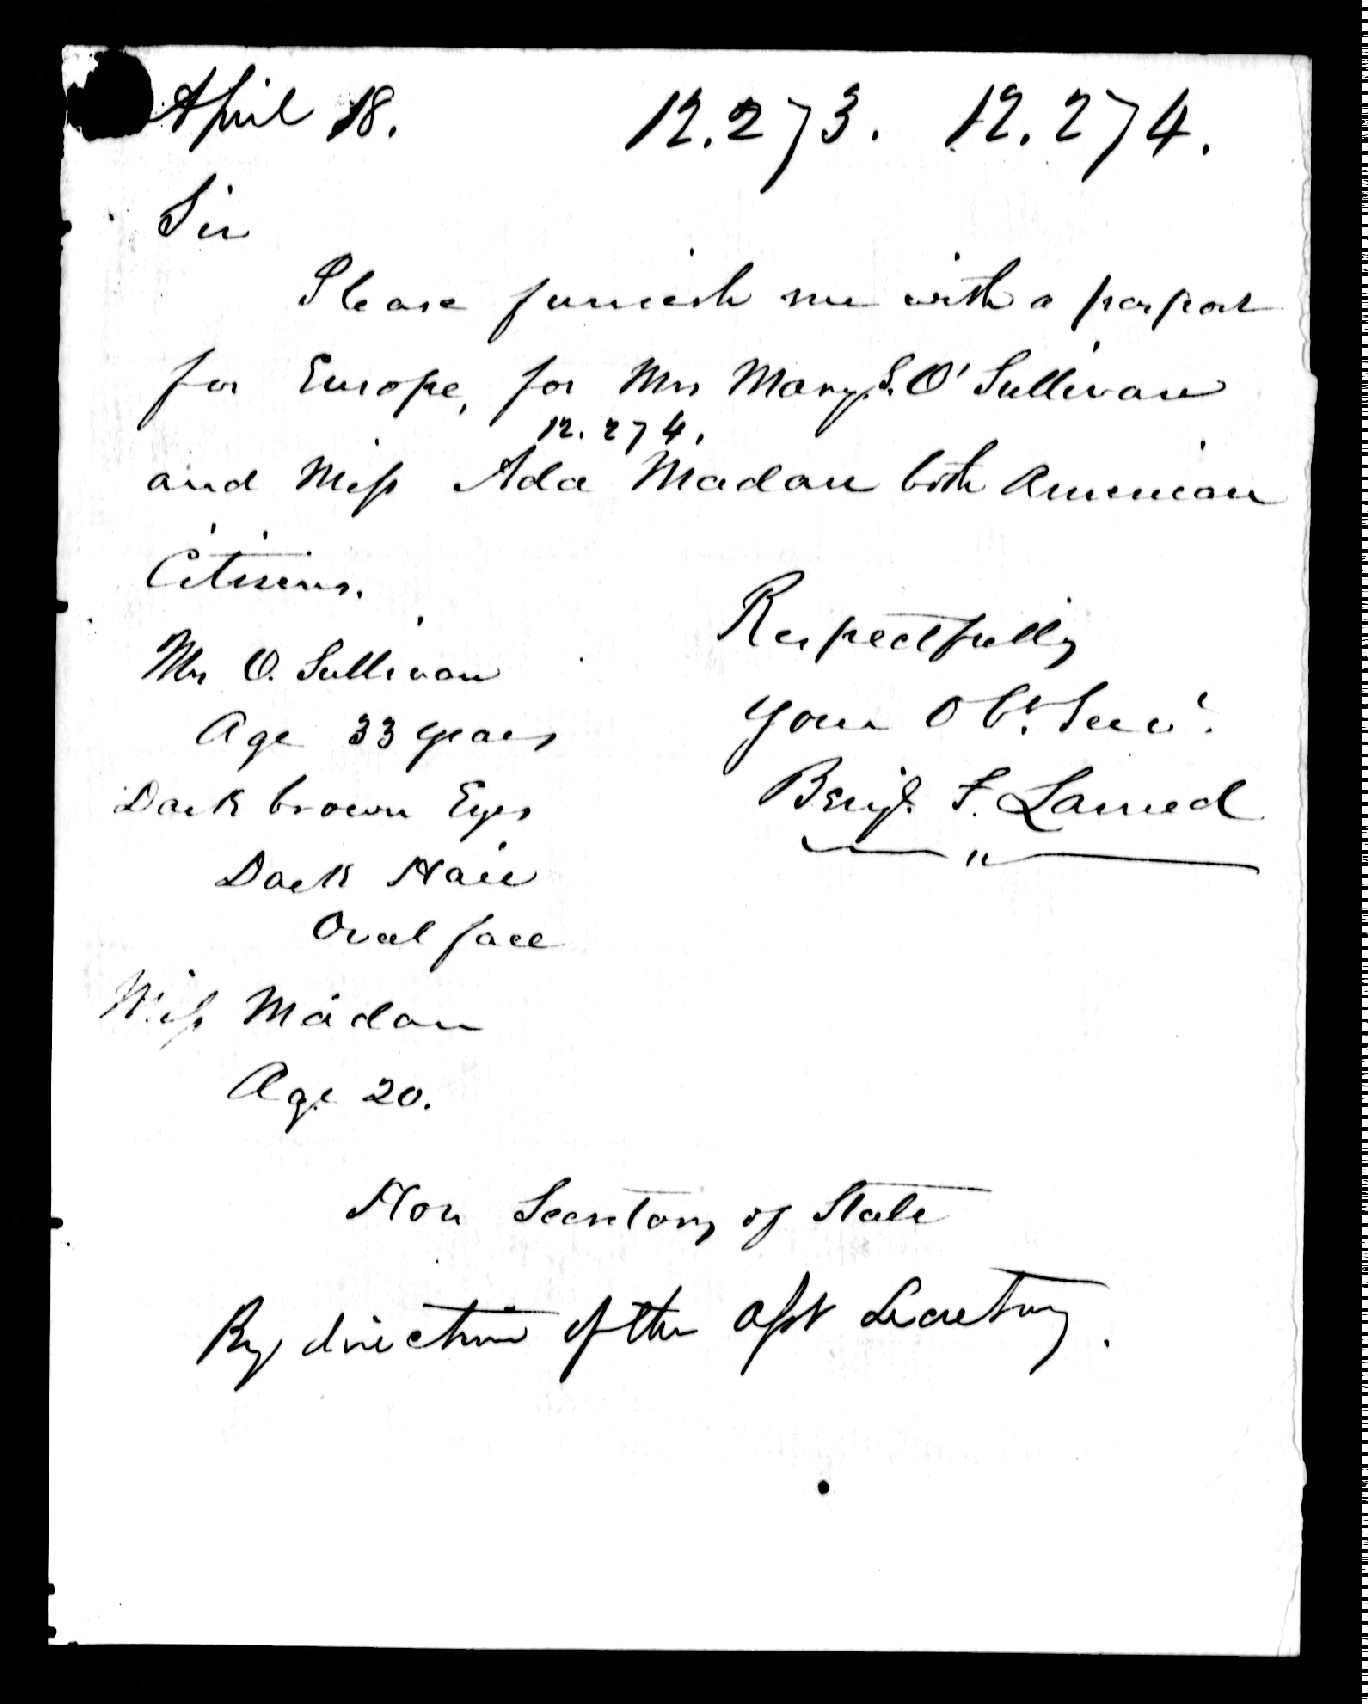 April 18. 12.273. 12.274.
Sir
Please furnish me with a passport
for Europe, for Mrs Mary S. O'Sullivan
12.274.
and Miss Ada Madan both American
Citizens.
Respectfully
Mrs O. Sullivan
Your Obt. Servt.
Age 33 years
Benjn. F. Larned
Dark brown Eyes
Dark Hair
Oval face
Miss Madan
Age 20.
Hon Secretary of State
By direction of the asst Secretary.